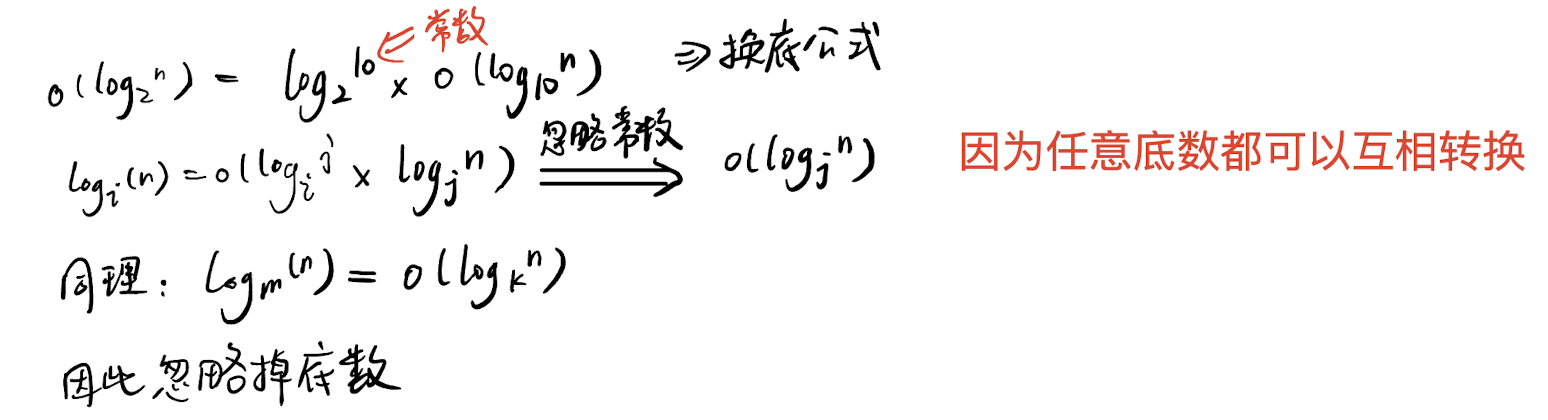 常数
O(log₂ⁿ) = log₂¹⁰ × O(log₁₀ⁿ) ⇒ 换底公式
logᵢ(n) = O(logᵢʲ × logⱼⁿ) 忽略常数 ⟹ O(logⱼⁿ) 因为任意底数都可以互相转换
同理: logₘ(n) = O(logₖⁿ)
因此忽略掉底数